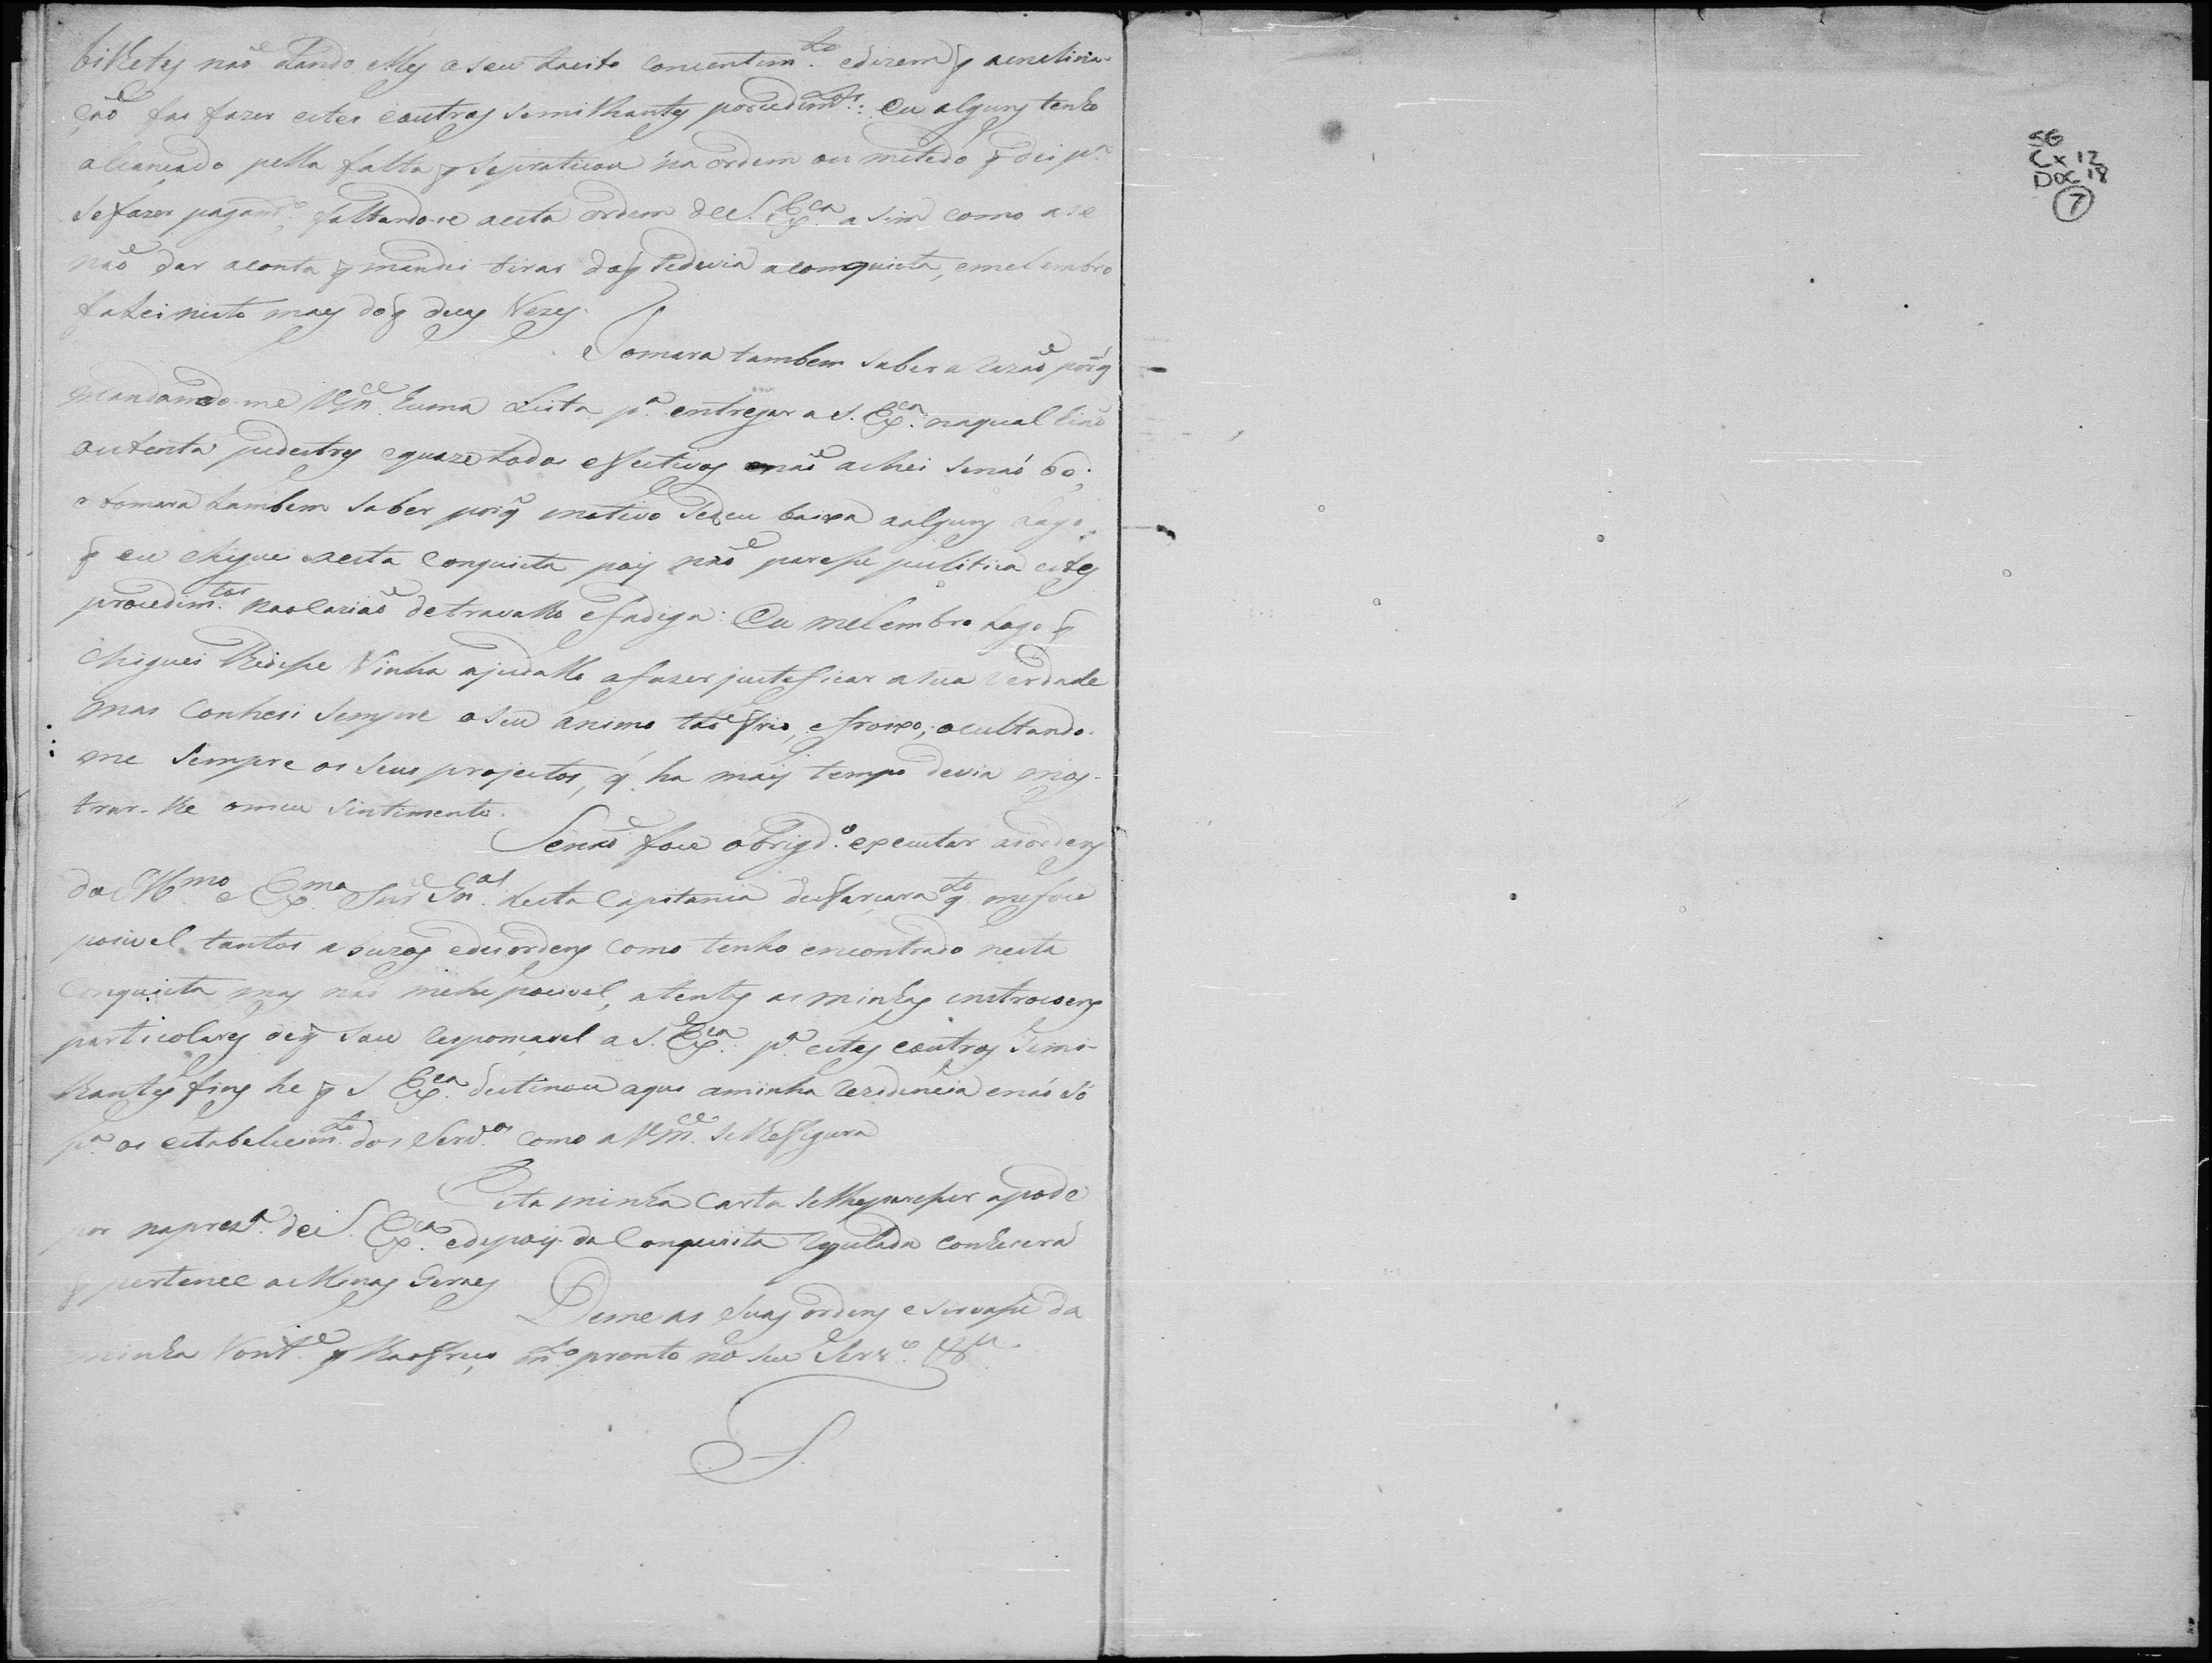 bilhetes naõ dando elles o seu tacito consentim.to e dizem q a inclina-
çaõ faz fazer estes e outros similhantes procedim.tos: Eu alguns tenho
alcançado pella falta q se praticou na ordem ou metedo q dei p.a
se fazer pagam.to, faltando-se a esta ordem de S. Ex.ca a sim como a se
naõ dar a conta q mandei tirar do q se devia a conquista, e me lembro
falei nisto mais do q duas vezes.
Tomara tambem saber a razaõ porq
mandando-me Vm.ce huma Lista p.a entregar a S. Ex.ca na qual
outenta pedestres e quaze todos efectivos e naõ achei senaõ 60;
e tomara tambem saber porq motivo se deu baixa a alguns Logo
q eu chegue a esta conquista pois naõ paresse pulitica estes
procedim.tos na ocasiaõ de travalho e fadiga: Eu me lembro Logo q
chiguei lhe disse vinha ajudallo a fazer justeficar a sua verdade
mas conhesi sempre o seu animo taõ frio, e froixo; ocultando-
me sempre os seus projectos, q ha mais tempo devia mos-
trar-lhe o meu sintimento.
Se naõ fose obrigd.o executar as ordens
do Ill.mo e Ex.mo Snr Gn.al desta Capitania desfarçara q.to me fose
posivel tantos asuros e desordens como tenho encontrado nesta
Conquista mas naõ me he posivel, atentas as minhas instrocoens
particolares de q sou responçavel a S. Ex.ca p.a estes e outros simi-
lhantes fins he q S Ex.ca destinou aqui a minha rezidencia e naõ só
p.a os estabelecim.tos dos Serv.os como a Vm.ce se lhe figura
Esta minha carta se lhe paresser a pode
por na prez.a de S. Ex.ca e depois da Conquista regulada conhecerá
q pertence a Minas Geraes
Deme as suas ordens e sirvase da
minha Vont.e q m.to pronto no seu Serv.o
S.
SG
CX 12
DOC 18
7